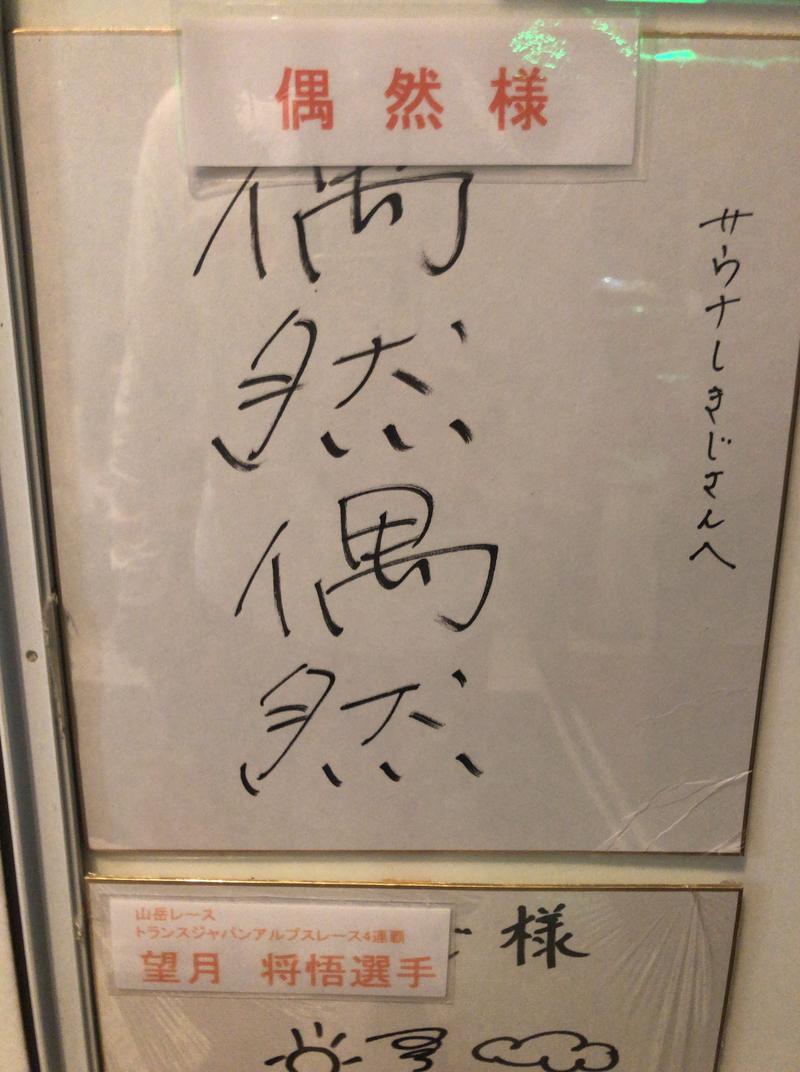 偶然様
偶然偶然
サウナしきじさんへ
山岳レース
トランスジャパンアルプスレース4連覇
望月 将悟選手
様